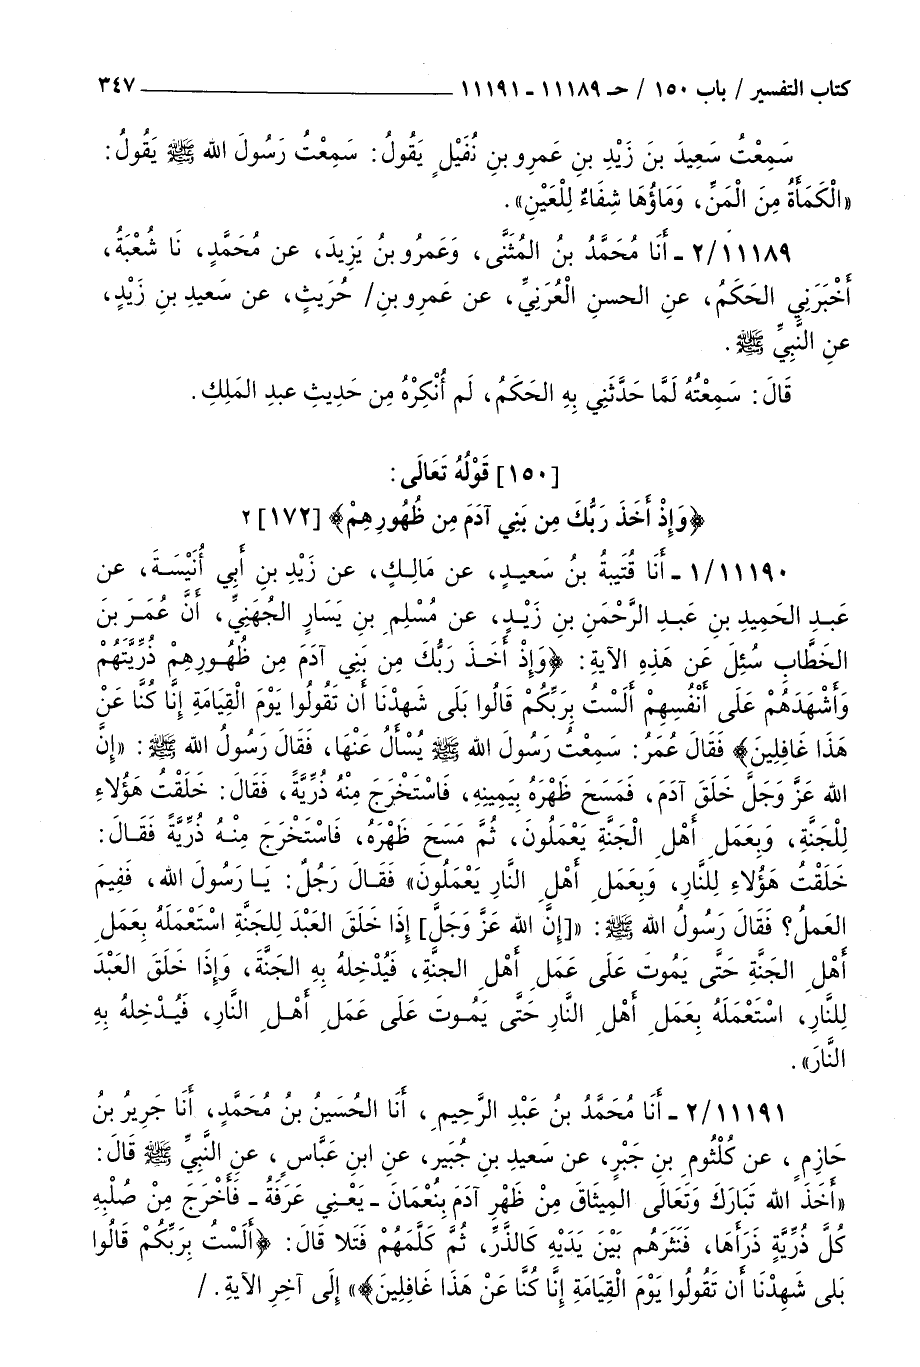 كتاب التفسير / باب ١٥٠ / حـ ١١١٨٩ - ١١١٩١ ٣٤٧
سَمِعْتُ سَعِيدَ بنَ زَيْدِ بنِ عَمرِو بنِ نُفَيْلٍ يَقُولُ: سَمِعْتُ رَسُولَ الله ﷺ يَقُولُ:
«الْكَمَأَةُ مِنَ الْمَنِّ، وَمَاؤُهَا شِفَاءٌ لِلْعَيْنِ».
٢/١١١٨٩ ـ أَنَا مُحَمَّدُ بنُ المُثَنَّى، وَعَمرُو بنُ يَزِيدَ، عن مُحَمَّدٍ، نَا شُعْبَةُ،
أَخْبَرَنِي الحَكَمُ، عنِ الحسنِ الْعُرَنِيِّ، عن عَمرِو بنِ/ حُرَيثٍ، عن سَعيدِ بنِ زَيْدٍ،
عنِ النَّبِيِّ ﷺ .
قَالَ: سَمِعْتُهُ لَمَّا حَدَّثَنِي بِهِ الحَكَمُ، لَم أُنْكِرْهُ مِن حَدِيثِ عبدِ المَلِكِ.
[١٥٠] قَوْلُهُ تَعَالَى:
﴿وَإِذْ أَخَذَ رَبُّكَ مِن بَنِي آدَمَ مِن ظُهُورِهِمْ﴾ [١٧٢] ٢
١/١١١٩٠ ـ أَنَا قُتَيبةُ بنُ سَعيدٍ، عن مَالِكٍ، عن زَيْدِ بنِ أَبِي أُنَيْسَةَ، عن
عَبدِ الحَمِيدِ بنِ عَبدِ الرَّحْمَنِ بنِ زَيْدٍ، عن مُسْلِمِ بنِ يَسَارٍ الجُهَنِيِّ، أَنَّ عُمَرَ بنَ
الخَطَّابِ سُئِلَ عَن هَذِهِ الآيةِ: ﴿وَإِذْ أَخَذَ رَبُّكَ مِن بَنِي آدَمَ مِن ظُهُورِهِمْ ذُرِّيَّتَهُمْ
وَأَشْهَدَهُمْ عَلَى أَنْفُسِهِمْ أَلَسْتُ بِرَبِّكُمْ قَالُوا بَلَى شَهِدْنَا أَن تَقُولُوا يَوْمَ الْقِيَامَةِ إِنَّا كُنَّا عَنْ
هَذَا غَافِلِينَ﴾ فَقَالَ عُمَرُ: سَمِعْتُ رَسُولَ الله ﷺ يُسْأَلُ عَنْهَا، فَقَالَ رَسُولُ الله ﷺ: «إِنَّ
الله عَزَّ وَجَلَّ خَلَقَ آدَمَ، فَمَسَحَ ظَهْرَهُ بِيَمِينِهِ، فَاسْتَخْرَجَ مِنْهُ ذُرِّيَّةً، فَقَالَ: خَلَقْتُ هَؤُلاءِ
لِلْجَنَّةِ، وَبِعَمَلِ أَهْلِ الْجَنَّةِ يَعْمَلُونَ، ثُمَّ مَسَحَ ظَهْرَهُ، فَاسْتَخْرَجَ مِنْهُ ذُرِّيَّةً فَقَالَ:
خَلَقْتُ هَؤُلاءِ لِلنَّارِ، وَبِعَمَلِ أَهْلِ النَّارِ يَعْمَلُونَ» فَقَالَ رَجُلٌ: يَا رَسُولَ الله، فَفِيمَ
العَملُ؟ فَقَالَ رَسُولُ الله ﷺ: «[إِنَّ الله عَزَّ وَجَلَّ] إِذَا خَلَقَ العَبْدَ لِلجَنَّةِ اسْتَعْمَلَهُ بِعَمَلِ
أَهْلِ الجَنَّةِ حَتَّى يَمُوتَ عَلَى عَمَلِ أَهْلِ الجنَّةِ، فَيُدْخِلهُ بِهِ الجَنَّةَ، وَإِذَا خَلَقَ العَبْدَ
لِلنَّارِ، اسْتَعْمَلَهُ بِعَمَلِ أَهْلِ النَّارِ حَتَّى يَمُوتَ عَلَى عَمَلِ أَهْلِ النَّارِ، فَيُدْخِلهُ بِهِ
النَّارَ».
٢/١١١٩١ ـ أَنَا مُحَمَّدُ بنُ عَبْدِ الرَّحِيمِ، أَنَا الحُسَينُ بنُ مُحَمَّدٍ، أَنَا جَرِيرُ بنُ
حَازِمٍ، عن كُلْثُومِ بنِ جَبْرٍ، عن سَعيدِ بنِ جُبَيرٍ، عنِ ابنِ عَبَّاسٍ، عنِ النَّبِيِّ ﷺ قَالَ:
«أَخَذَ الله تَبَارَكَ وَتَعَالَى المِيثَاقَ مِنْ ظَهْرِ آدَمَ بِنُعْمَانَ ـ يَعْنِي عَرَفَةَ ـ فَأَخْرَجَ مِنْ صُلْبِهِ
كُلَّ ذُرِّيَّةٍ ذَرَأَهَا، فَنَثَرَهُم بَيْنَ يَدَيْهِ كَالذَّرِّ، ثُمَّ كَلَّمَهُمْ فَتَلا قَالَ: ﴿أَلَسْتُ بِرَبِّكُمْ قَالُوا
بَلى شَهِدْنَا أَن تَقُولُوا يَوْمَ الْقِيَامَةِ إِنَّا كُنَّا عَنْ هَذَا غَافِلِينَ﴾» إِلَى آخِرِ الآيةِ. /